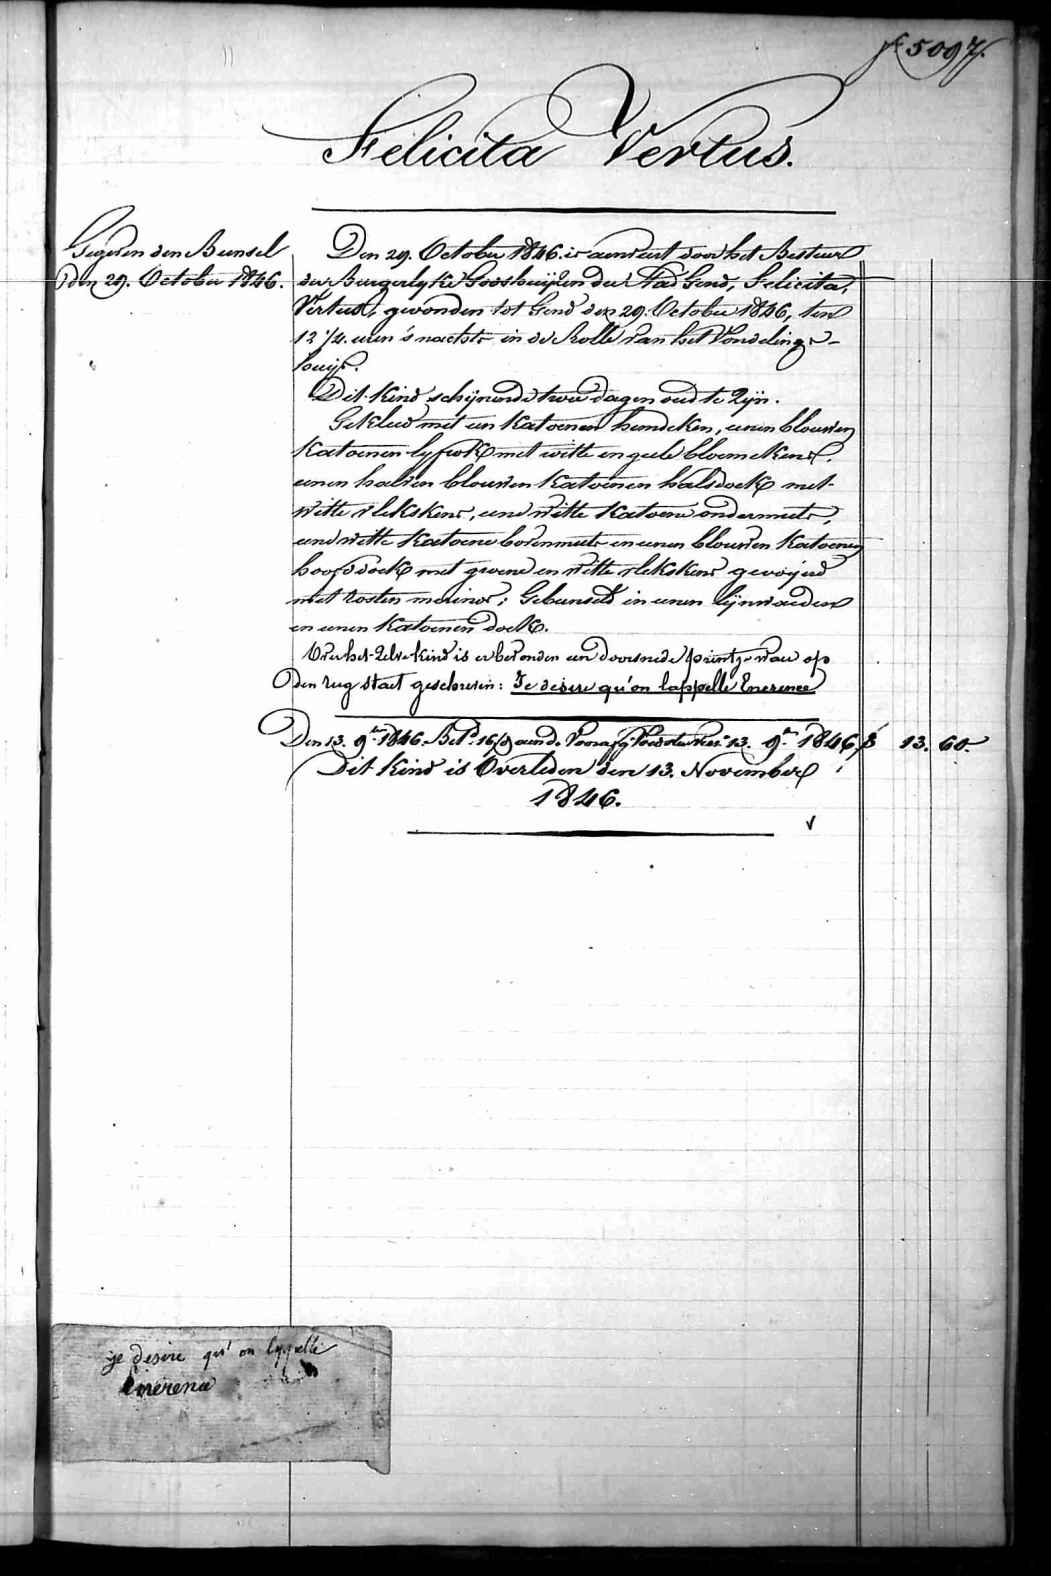 f° 5097.
Felicita Vertus.
Gegeven den Bunsel
den 29. October 1846.
Den 29. October 1846. is aenveert door het Bestuur
der Burgerlyke Godshuijzen der Stad Gend, Felicita,
Vertus, gevonden tot Gend den 29. October 1846, ten
12 1/2 uren 's nachts in de Rolle van het Vondelings-
huijs.
Dit Kind schijnende twee dagen oud te Zijn.
Gekleed met een Katoenen hemdeken, eenen blouwen
Katoenen lyfrok met witte en geele bloemekens,
eenen halven blouwen Katoenen halsdoek met
witte vlekskens, eene witte Katoene ondermuts,
eene witte Katoene bovenmuts en eenen blouwen Katoenen
hoofddoek met groene en witte vlekskens gevoijerd
met rosten merinos; Gebunseld in eenen lijnwaeden
en eenen Katoenen doek.
Over het Zelve kind is er bevonden een doorsnede printje waer op
den rug staet geschreven: Je desire qu'on lappelle Enerence
Den 13. 9ber 1846. Betd. 16/d aen de Voedster 13. 9ber 1846 13. 60.
Dit Kind is Overleden den 13. November
1846.
je desire qu' on lappelle
Enerence